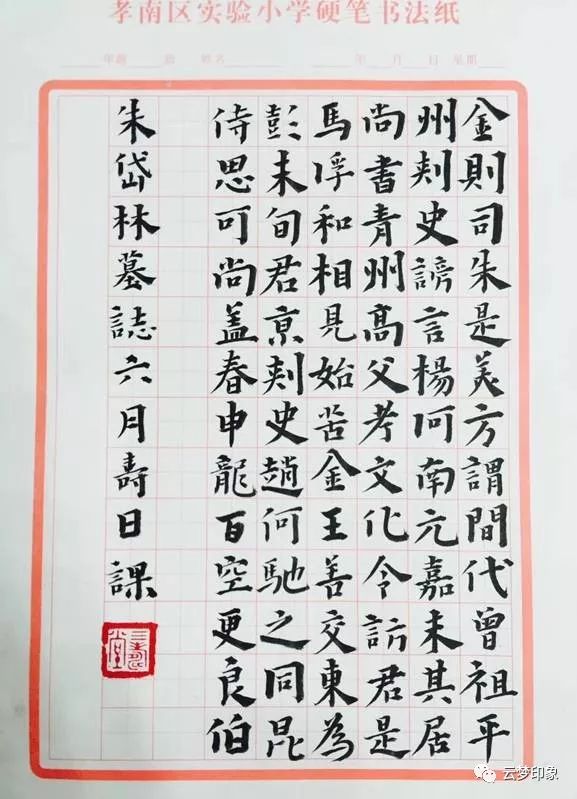 孝南区实验小学硬笔书法纸
年级 班 姓名 年 月 日 星期
金則司朱是羙方謂間代曾祖平
州刾史謗言楊何南元嘉未其居
尚書青州髙父考文化令訪君是
馬俘和相見始苦金王善交東為
彭未旬君京刾史趙何馳之同昆
侍思可尚盖春申龍百空更良伯
朱岱林墓誌六月壽日課
云梦印象